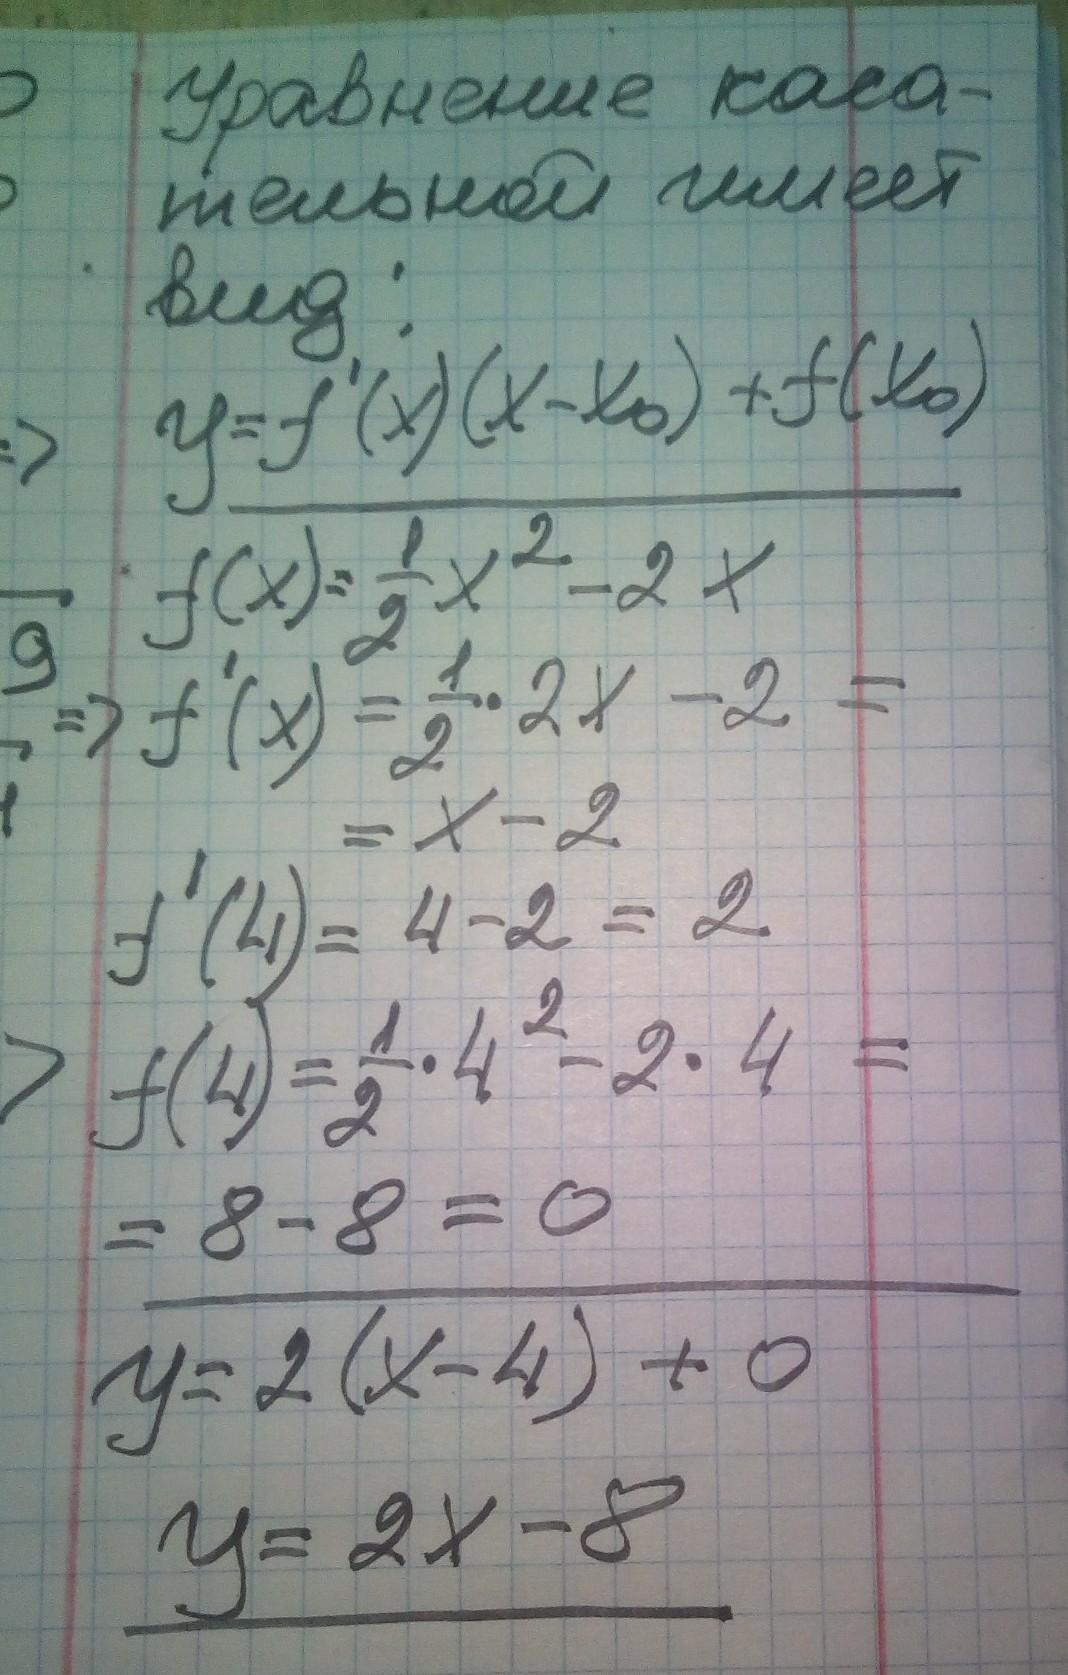 Уравнение каса-
тельной имеет
вид:
y=f'(x)(x-x₀)+f(x₀)
f(x)=1/2x²-2x
=> f'(x)=1/2·2x-2=
=x-2
f'(4)=4-2=2
f(4)=1/2·4²-2·4=
=8-8=0
y=2(x-4)+0
y=2x-8
=>
9
>